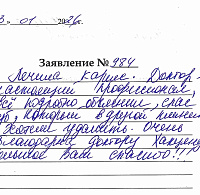 3. 01 2026г.
Заявление № 984
Лечила кариес. Доктор
настоящий профессионал,
всё подробно объяснил, спас
зуб, который в другой клинике
хотели удалить. Очень
благодарна доктору
большое вам спасибо!!!